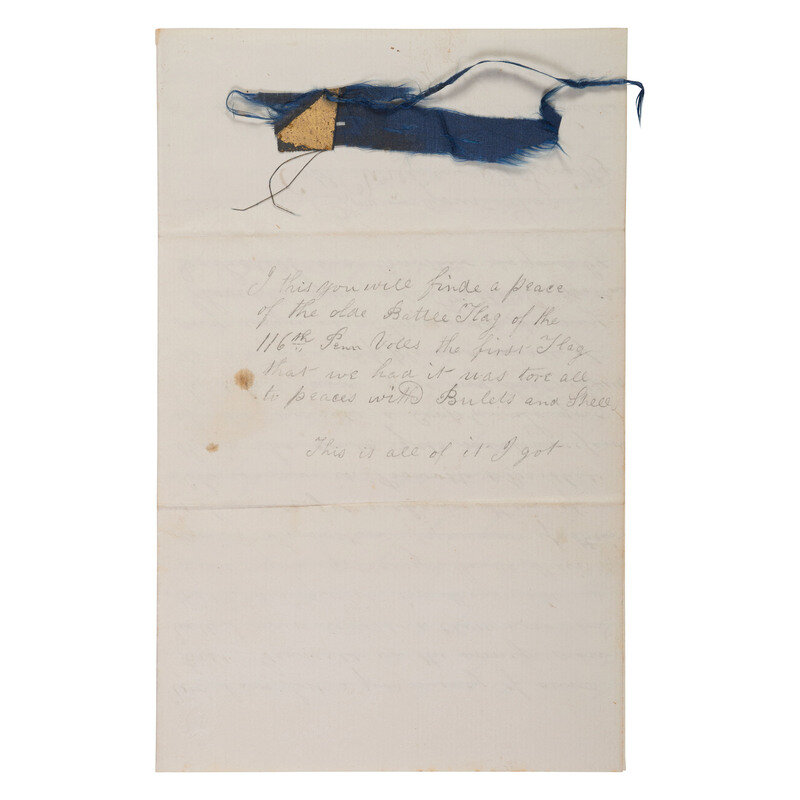 I this you will finde a peace
of the olde Battle Flag of the
116th Penn Volls the first Flag
that we had it was tore all
to peaces with Bulets and Shell
This is all of it I got